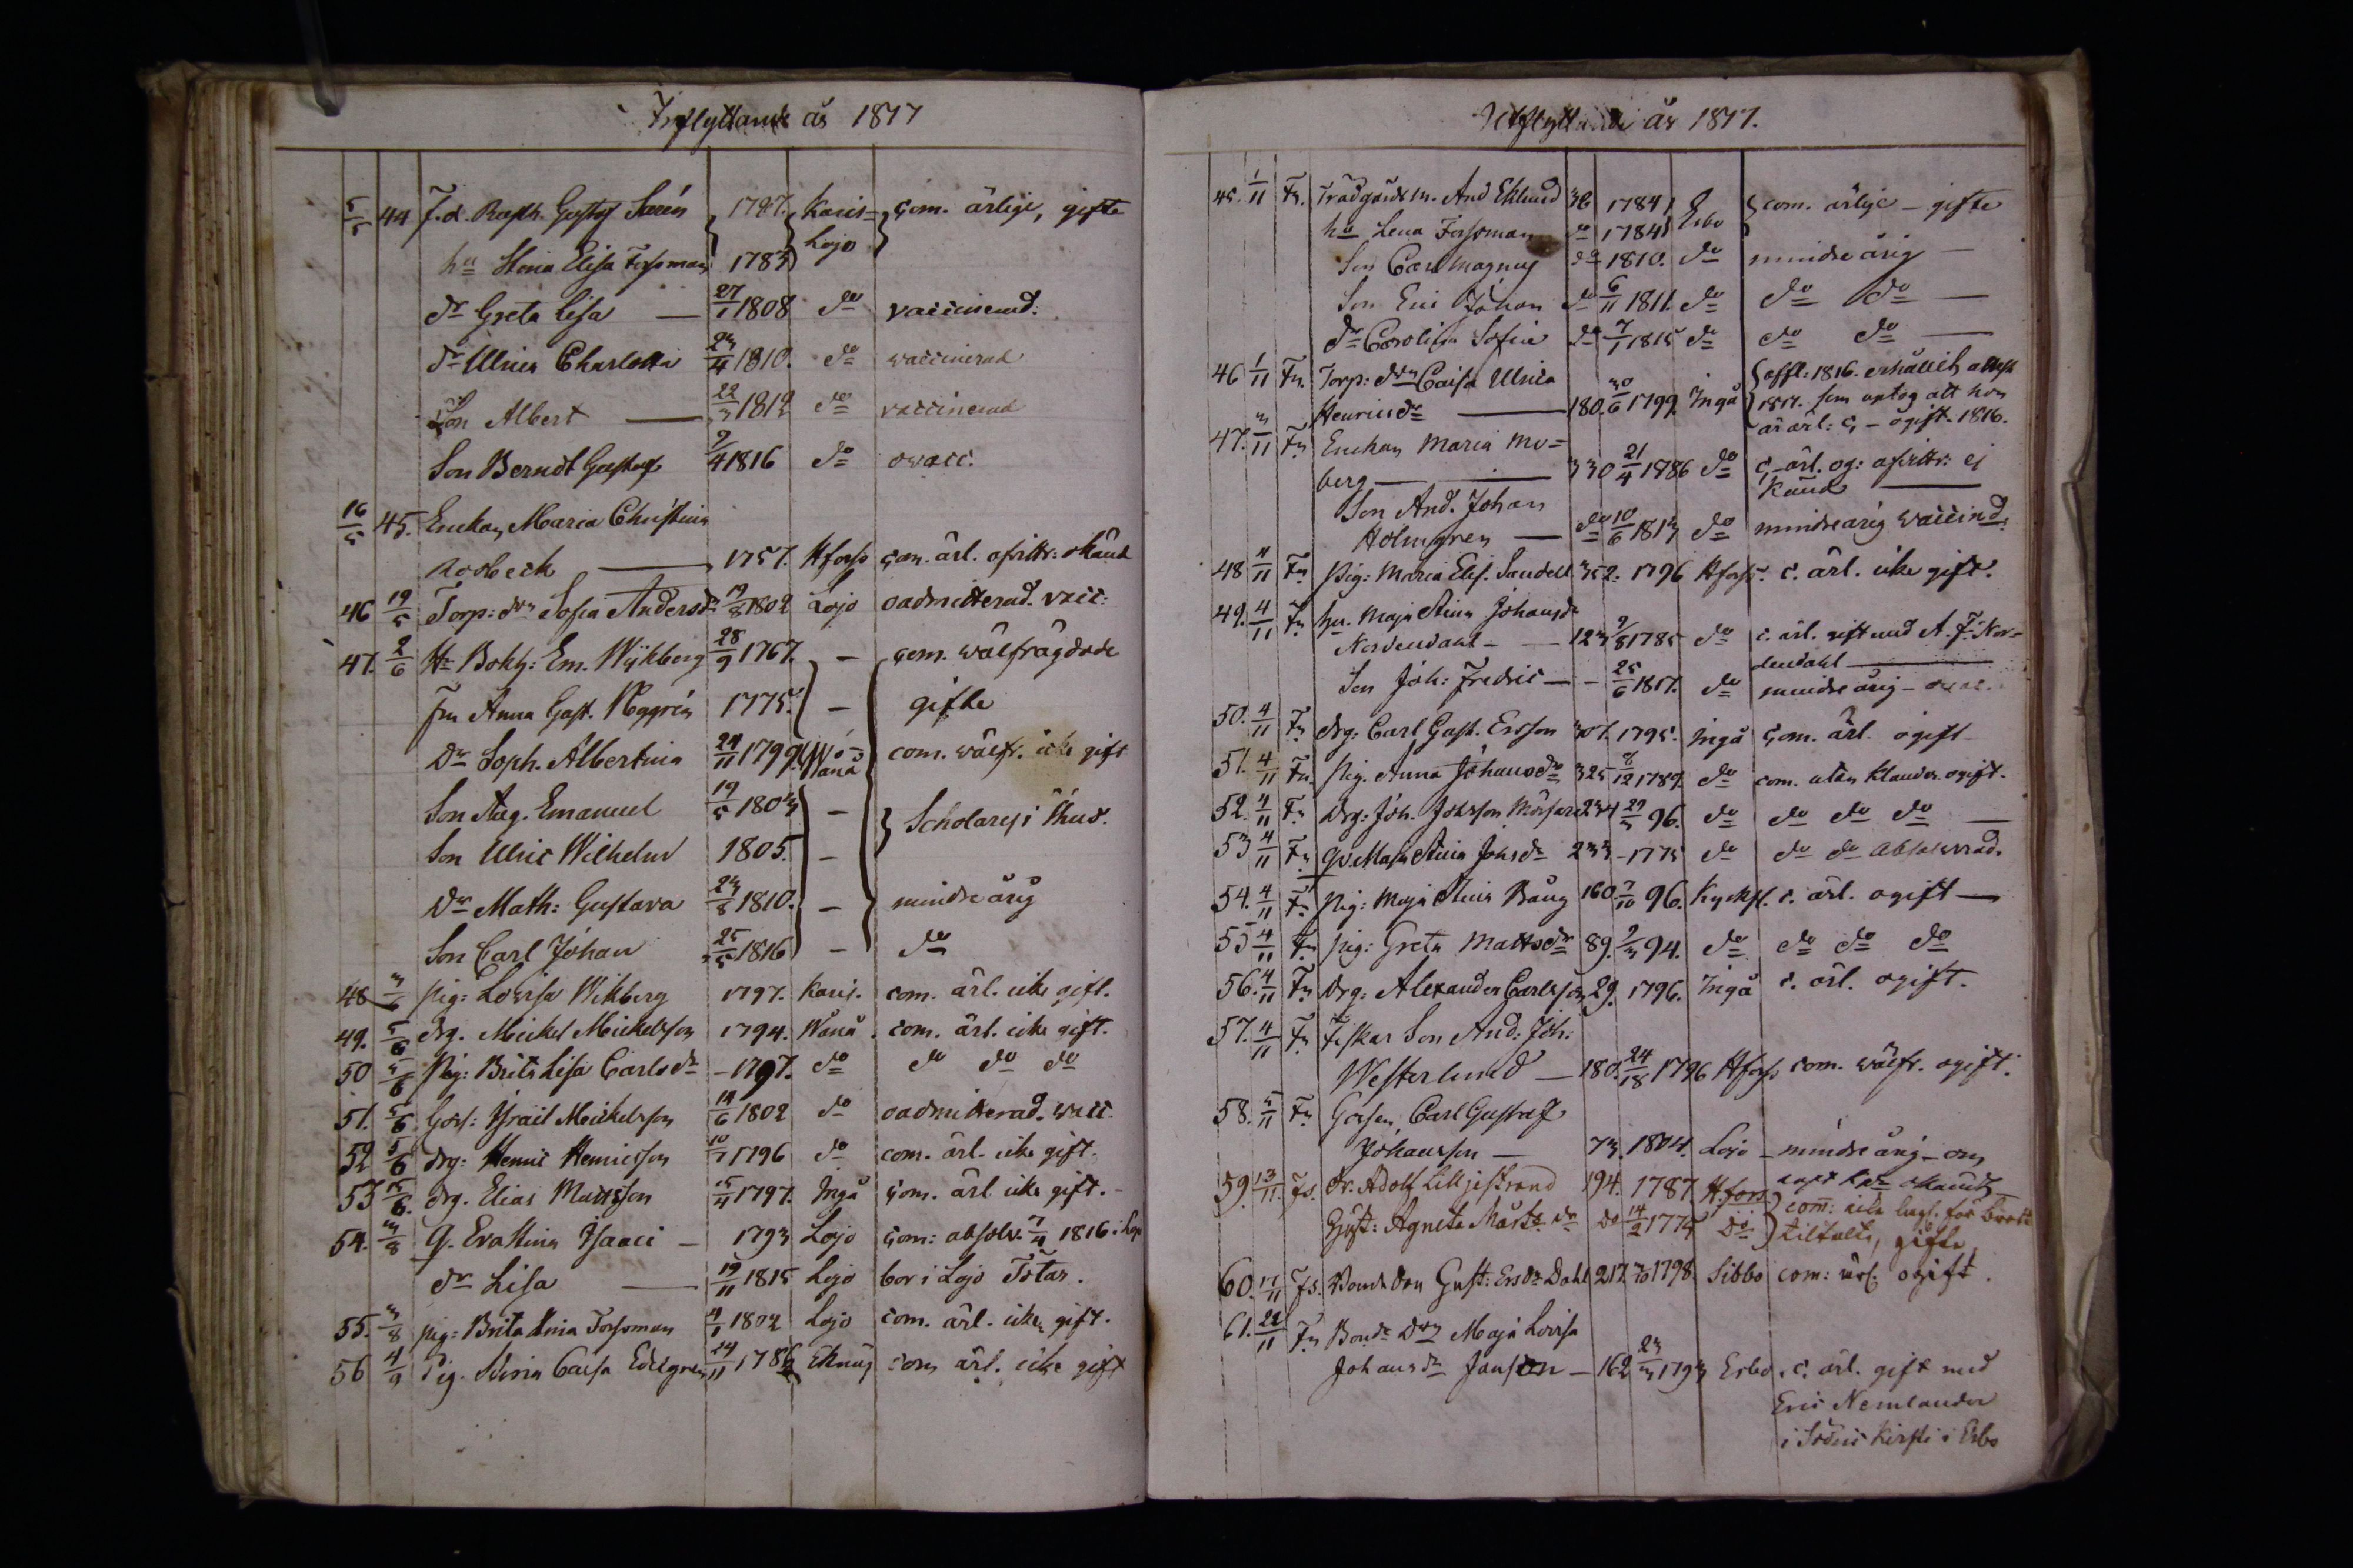 Inflyttande år 1817
5/5 44 f.d. Gustaf 1787. Karis= com. ärlige, gifte
hu Elisa Forsman 1783 Lojo
dr Greta Lisa — 27/1 1808 do vaccinerad.
dr Ulrica Charlotta 23/4 1810. do vaccinerad
Son Albert — 22/3 1812 do vaccinerad
Son Berndt Gustaf 9/4 1816 do ovacc.
16/5 45. Enckan Maria Christina
Rosbeck — 1757. Hfors com. ärl. afsittr: okänd
46 19/5 Torp: dtr Sofia Andersdr 19/8 1802 Lojo oadmitterad. vacc:
47. 2/6 Hr Bokh: Em. Wikberg 28/9 1767. — com. wälfrägdade
Fru Anna Gust. 1775. — gifte
Dr Soph. Albertina 24/11 1799. Wånå com. wälfr. icke gift
Son Aug. Emanuel 19/5 1803 —
Son Ulric Wilhelm 1805. — Scholares i Åbo
Dr Math: Gustava 23/8 1810. — mindre årig
Son Carl Johan 25/5 1816 — do
48 3/6 pig: Lovisa Wikberg 1797. Karis. com. ärl. icke gift.
49. 5/6 drg. Michel Michelsson 1794. Wånå. com. ärl. icke gift.
50 5/6 Pig: Brita Lisa Carlsdr — 1797. do do do do
51. 5/6 Goss: Israil Michelsson 14/6 1802 do oadmitterad. vacc.
52 5/6 drg: Henric Henricsson 10/1 1796 do com. ärl. icke gift.
53 15/6. drg. Elias Mattsson 15/4 1797. Ingå com. ärl icke gift.
54. 3/8 Q. Eva Stina Isaaci — 1793 Lojo com: absolv. 7/4 1816 i
dr Lisa — 19/11 1815 Lojo bor i Lojo
55. 3/8 pig: Brita Stina Forsman 4/1 1802 Lojo com. ärl. icke gift.
56 4/9 Pig. Stina Caisa Edelgren 24/11 1786 Eknäs com ärl. icke gift
Utflyttande år 1817.
45. 1/11 Fn. Trädgårdsm. And Eklund 36 1784 Esbo com. ärlige — gifte
hu Lena Forsoman do 1784
Son Carl Magnus do 1810. do mindre årig —
Son Eric Johan do 6/11 1811. do do do —
dr Carolina Sofia do 7/1 1815 do do do —
46 1/11 Fn. Torp: dtr Caisa Ulrica 1816. erhållit attest
Henricsdr — 180. 30/6 1799. Ingå 1817. som uptog att hon
är ärl: — ogift. 1816.
47. 3/11 Fn Enckan Maria Mo=
berg — 330 21/4 1786 do c, ärl. og: afsittr: ej
känd —
Son And. Johan
Holmgren — do 10/6 1813 do mindreårig vaccind.
48 4/11 Fn Pig: Maria Elis. Sandell 352. 1796 Hfors. c. ärl. icke gift.
49. 4/11 Fn hu. Maja Stina Johansdr
Nordendahl — 123 9/8 1785 do c. ärl. gift med A. F. Nor=
dendahl —
Son Joh: Fredric — — 25/6 1817. do mindre årig —
50. 4/11 Fn drg: Carl Gust. Ersson 301. 1795. Ingå com. ärl. ogift
51. 4/11 Fn. Pig. Anna Johansdr 325 8/12 1789. do com. utan klander. ogift.
52. 4/11 Fn drg: Joh. Johsson 234 27/5 96. do do do do —
53 4/11 Fn Qv Maja Stina Johsdr 233 — 1775 do do do absolverad.
54. 4/11 Fn Pig: Maja Stina Bång 160. 7/10 96. Kyrksl. c. ärl. ogift —
55 4/11 Fn pig: Greta Mattsdr 89. 9/3 94. do do do do
56. 4/11 Fn Drg: Alexander Carlsson 29. 1796. Ingå c. ärl. ogift.
57. 4/11 Fn Fiskar Son And: Joh:
Westerlund — 180. 24/18 1796 Hfors com. wälfr. ogift.
58. 5/11 Fn Gossen, Carl Gustaf
Johansson — 73. 1804. Lojo — mindre årig —
59. 13/11. Fs. Adolf Liljestrand 194. 1787. Hfors com: icke lagl. för brott
Gust: Agneta do 14/2 1775 do tiltalte, gifte
60. 17/11 Fs. Bonde Gust: Ersdr Dahl 217. 1798. Sibbo com: ärl. ogift.
61. 22/11 Fn Bonde Dtr Maja Lovisa
Johansdr Janson — 162 23/3 1793 Esbo. c. ärl. gift med
Eric Nemlander
i i Esbo